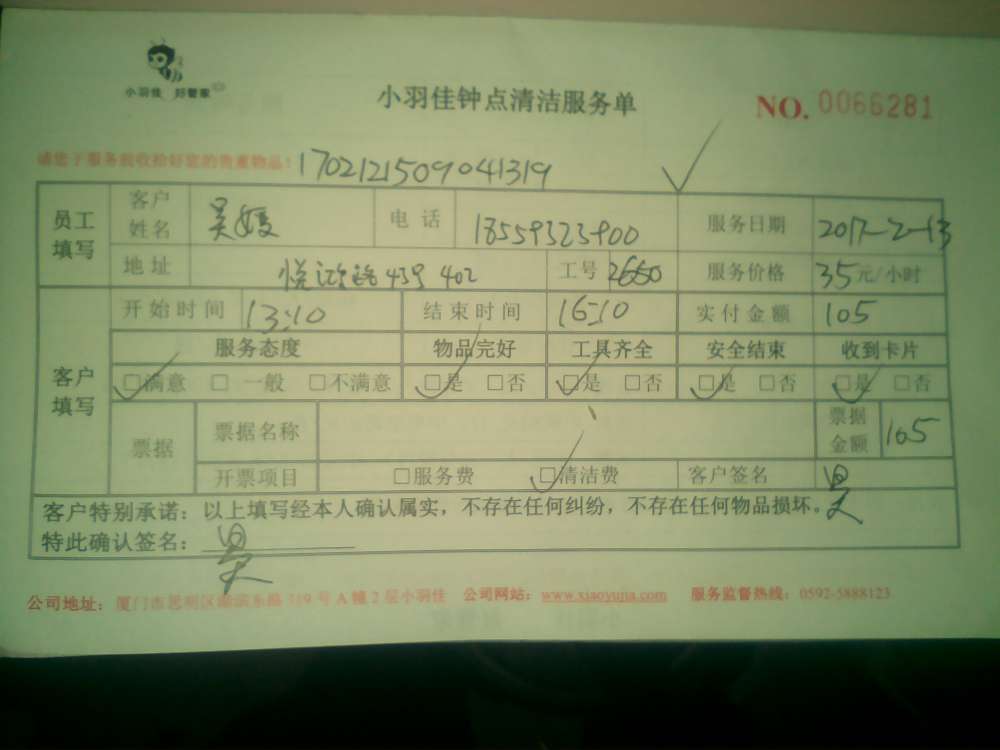 小羽佳 好管家
小羽佳钟点清洁服务单
NO. 0066281
请您于服务前收拾好您的贵重物品! 1702121509041319
员工填写 客户姓名 吴媛 电话 18559323900 服务日期 2017-2-13
地址 43号 402 工号 2660 服务价格 35元/小时
客户填写 开始时间 13:10 结束时间 16:10 实付金额 105
服务态度 物品完好 工具齐全 安全结束 收到卡片
☑满意 □一般 □不满意 ☑是 □否 ☑是 □否 ☑是 □否 ☑是 □否
票据 票据名称 票据金额 105
开票项目 □服务费 ☑清洁费 客户签名 吴
客户特别承诺：以上填写经本人确认属实，不存在任何纠纷，不存在任何物品损坏。
特此确认签名： 吴
公司地址：厦门市思明区湖滨东路319号A幢2层小羽佳 公司网站：www.xiaoyujia.com 服务监督热线：0592-5888123